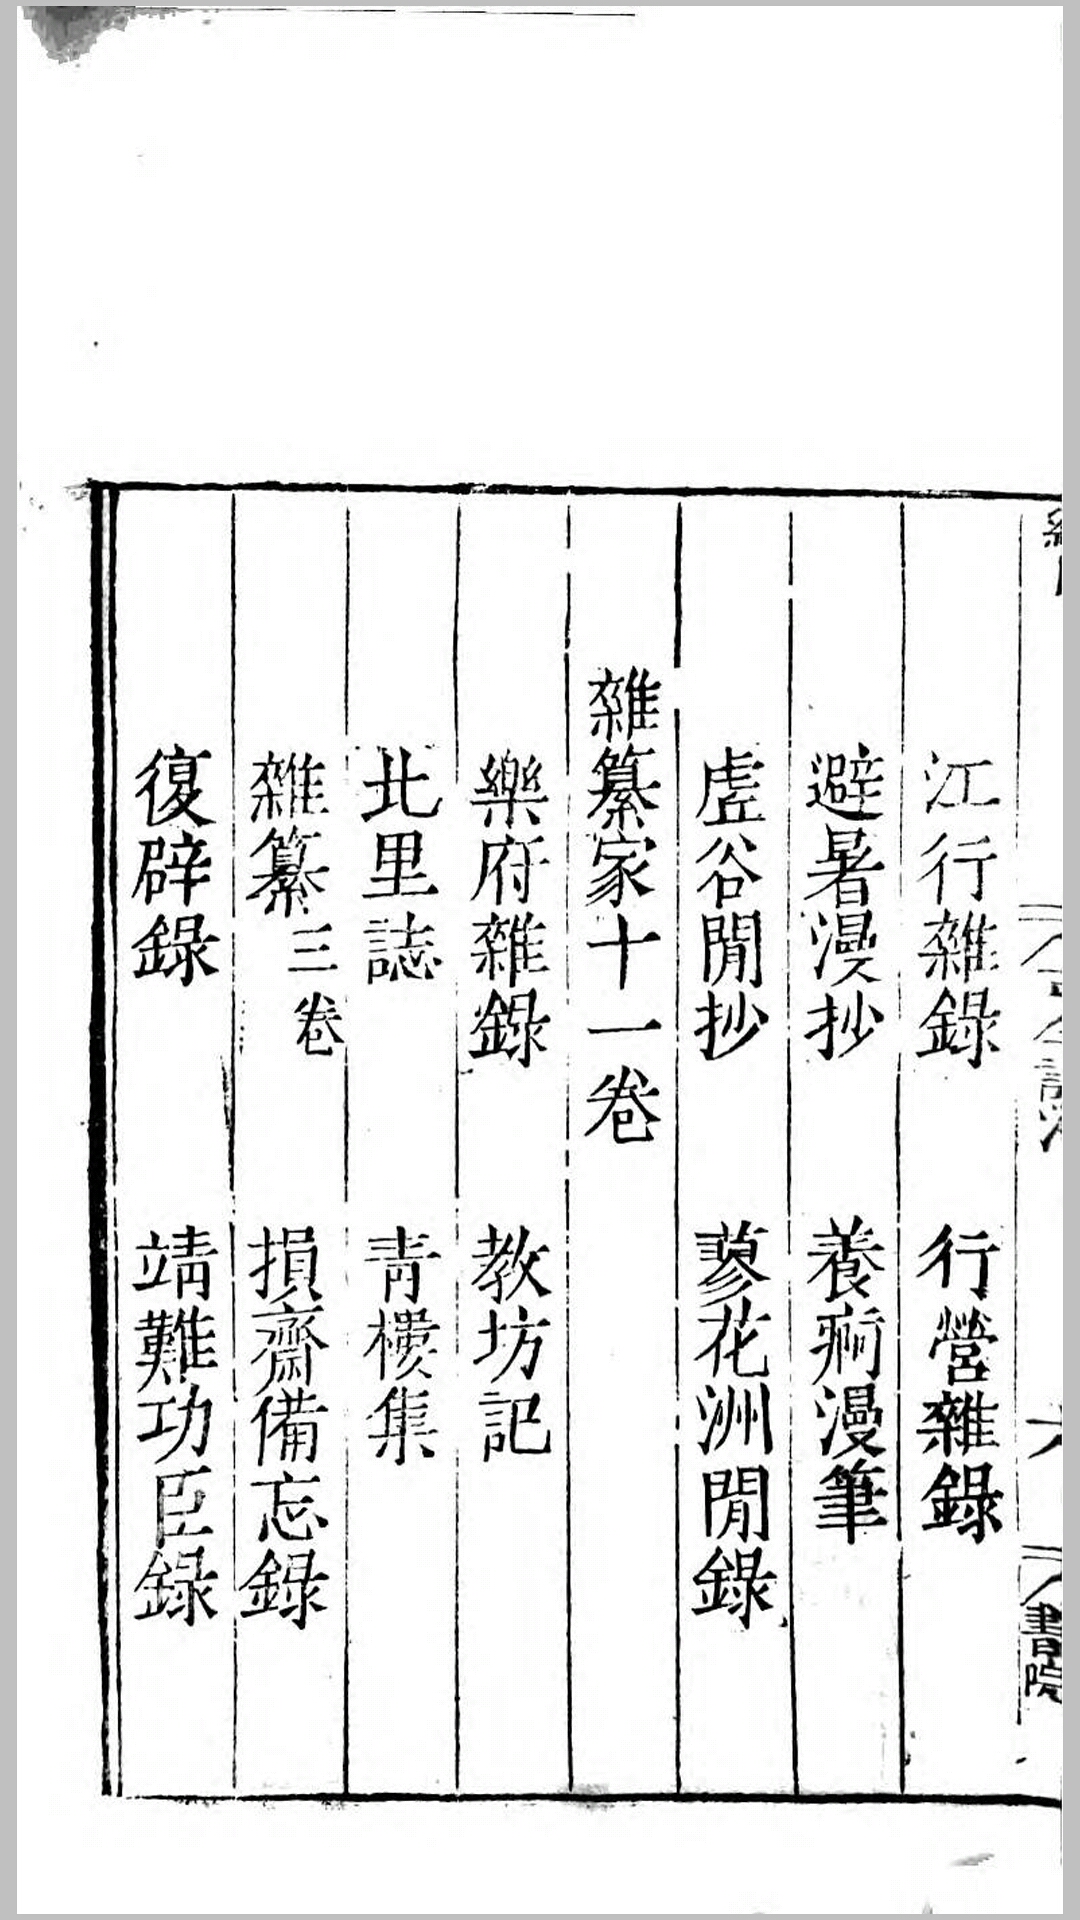 江行雜錄　行營雜錄
避暑漫抄　養痾漫筆
虛谷閒抄　蓼花洲閒錄
雜纂家十一卷
樂府雜錄　教坊記
北里誌　青樓集
雜纂三卷　損齋備忘錄
復辟錄　靖難功臣錄